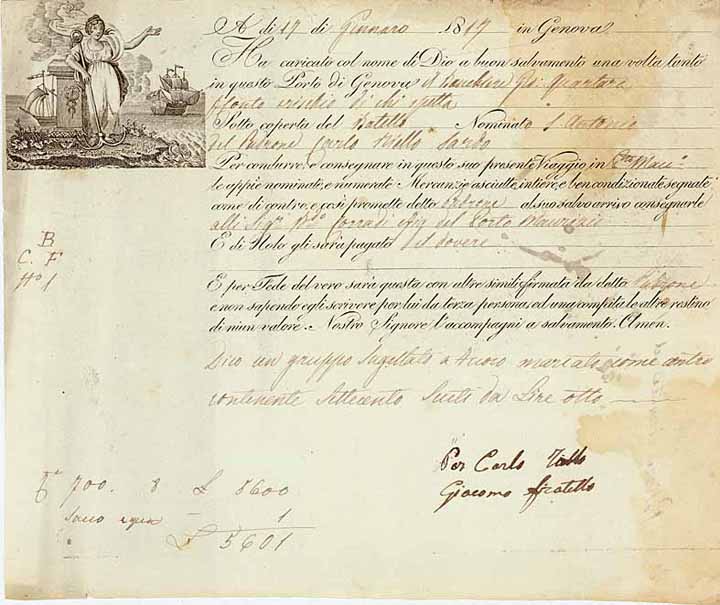 A dì 17 di Gennaro 1817 in Genova
Ha caricato col nome di Dio a buon salvamento una volta tanto
in questo Porto di Genova il Banchiere Gio Quartara
conto e rischio di chi spetta
Sotto coperta del Batello Nominato S Antonio
del Padrone Carlo Sardo
Per condurre, e consegnare in questo suo presente Viaggio in
le oppie nominate, e numerate Mercanzie asciutte, intiere, e ben condizionate segnate
come di contro, e così promette detto Padrone al suo salvo arrivo consegnarle
alli Sigri Corradi del Porto Maurizio
E di Nolo gli sarà pagato il dovere
B
C. F
No 1
E per Fede del vero sarà questa con altre simili firmata da detto Padrone
e non sapendo egli scrivere per lui da terza persona, ed una compita le altre restino
di niun valore. Nostro Signore l'accompagni a salvamento. Amen.
Dico un gruppo Sugellato a marcato come contro
contenente Settecento Scuti da Lire otto
Per Carlo
Giacomo fratello
700. 8 £ 5600
sacco e 1
£ 5601